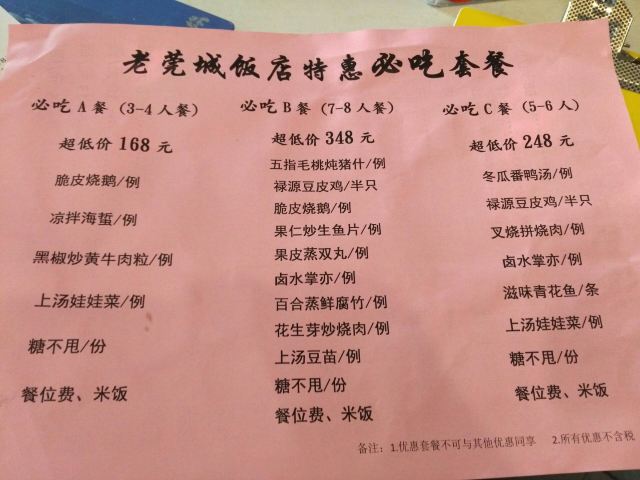 老莞城饭店特惠必吃套餐
必吃 A 餐（3-4 人餐）
超低价 168 元
脆皮烧鹅/例
凉拌海蜇/例
黑椒炒黄牛肉粒/例
上汤娃娃菜/例
糖不甩/份
餐位费、米饭
必吃 B 餐（7-8 人餐）
超低价 348 元
五指毛桃炖猪什/例
禄源豆皮鸡/半只
脆皮烧鹅/例
果仁炒生鱼片/例
果皮蒸双丸/例
卤水掌亦/例
百合蒸鲜腐竹/例
花生芽炒烧肉/例
上汤豆苗/例
糖不甩/份
餐位费、米饭
必吃 C 餐（5-6 人）
超低价 248 元
冬瓜番鸭汤/例
禄源豆皮鸡/半只
叉烧拼烧肉/例
卤水掌亦/例
滋味青花鱼/条
上汤娃娃菜/例
糖不甩/份
餐位费、米饭
备注：1.优惠套餐不可与其他优惠同享 2.所有优惠不含税